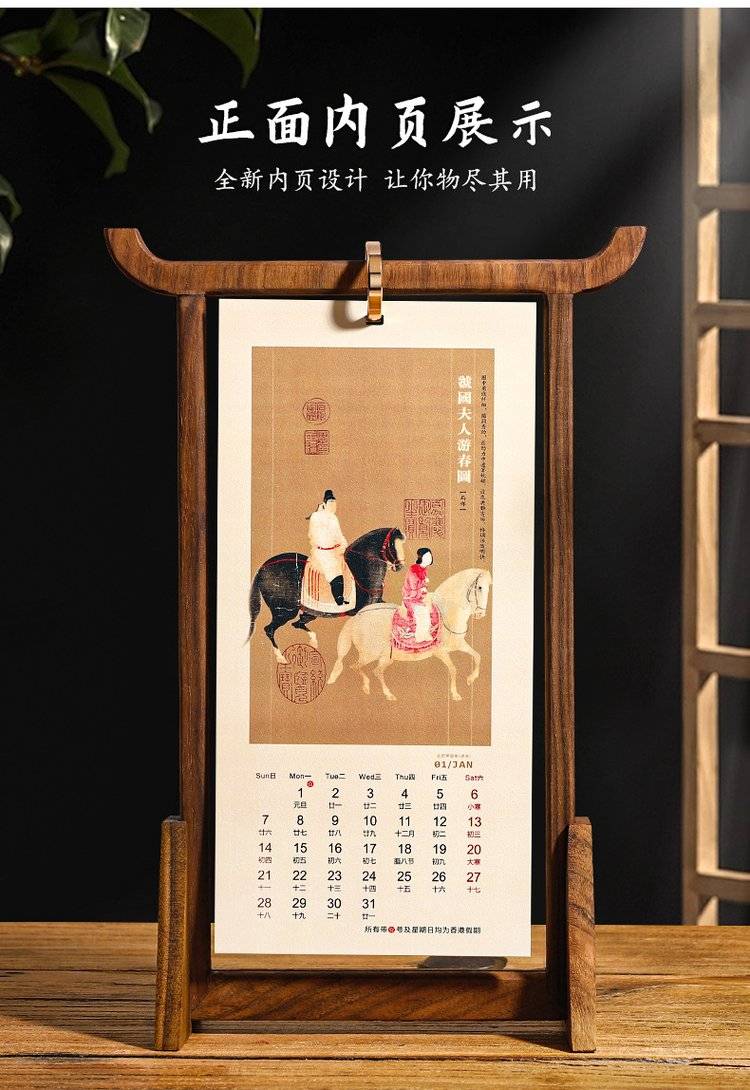 正面内页展示
全新内页设计 让你物尽其用
虢國夫人游春圖
01/JAN
Sun日 Mon一 Tue二 Wed三 Thu四 Fri五 Sat六
1 2 3 4 5 6
元旦 廿一 廿二 廿三 廿四 小寒
7 8 9 10 11 12 13
廿六 廿七 廿八 廿九 十二月 初二 初三
14 15 16 17 18 19 20
初四 初五 初六 初七 腊八节 初九 大寒
21 22 23 24 25 26 27
十一 十二 十三 十四 十五 十六 十七
28 29 30 31
十八 十九 二十 廿一
所有带 号及星期日均为香港假期